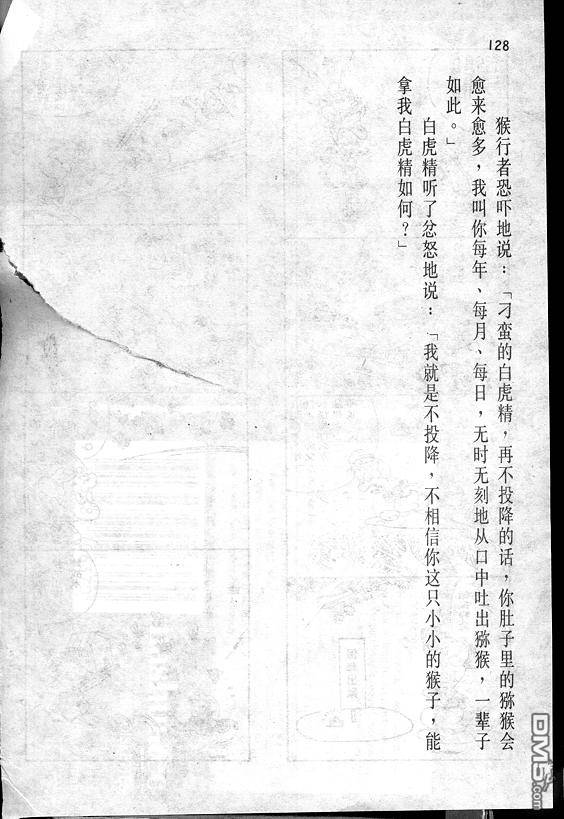 128
猴行者恐吓地说：「刁蛮的白虎精，再不投降的话，你肚子里的猕猴会
愈来愈多，我叫你每年、每月、每日，无时无刻地从口中吐出猕猴，一辈子
如此。」
白虎精听了忿怒地说：「我就是不投降，不相信你这只小小的猴子，能
拿我白虎精如何？」
DM5.com